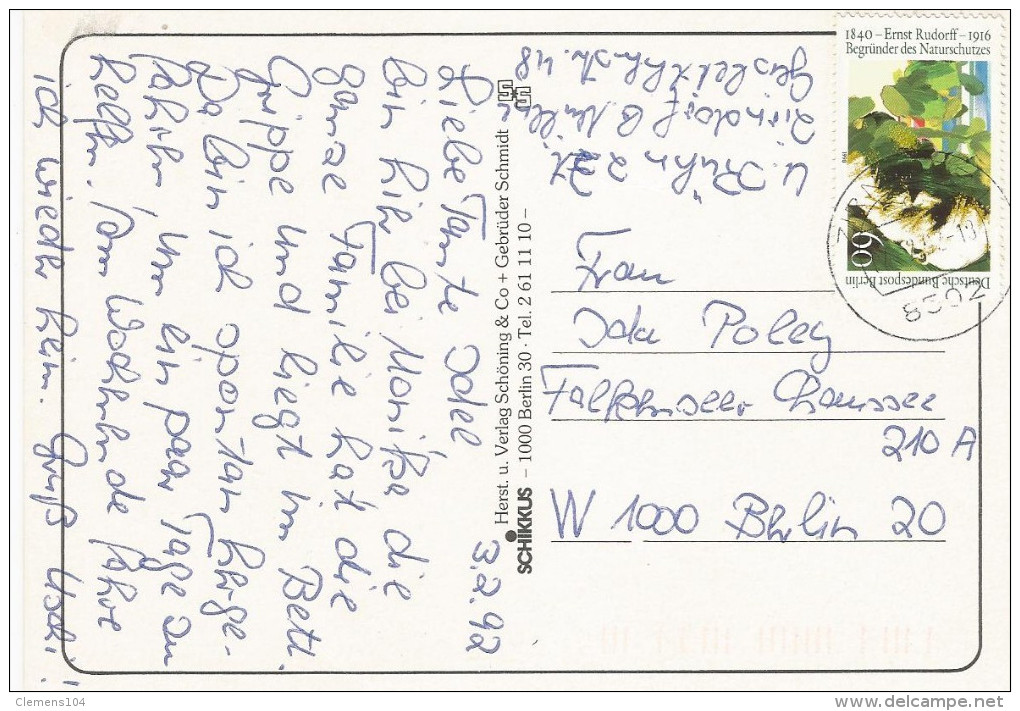 3.2.92
Liebe Tante Idel
bin hier bei Monika die
ganze Familie hat die
Grippe und liegt im Bett.
Da bin ich spontan herge-
fahren um ein paar Tage zu
helfen. Am Wochenende fahre
ich wieder heim. Gruß Uschi!
U. Rühr
Zirndorf b. 
48
Herst. u. Verlag Schöning & Co + Gebrüder Schmidt
SCHIKKUS – 1000 Berlin 30 · Tel. 2 61 11 10 –
1840 – Ernst Rudorff – 1916
Begründer des Naturschutzes
60
Deutsche Bundespost Berlin
8502
Frau
Ida Polley
Falkenseer Chaussee
210 A
W 1000 Berlin 20
Clemens104
delcampe.net